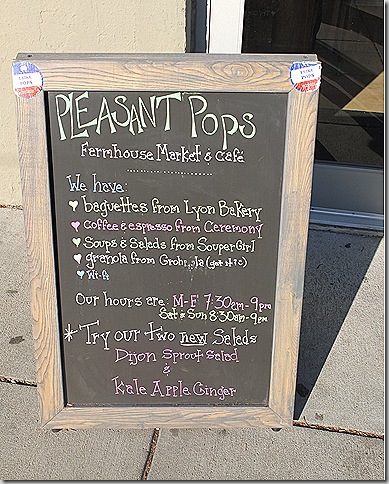 PLEASANT POPS
Farmhouse Market & Café
We have:
baguettes from Lyon Bakery
coffee & espresso from Ceremony
Soups & Salads from SouperGirl
granola from
Wi-fi
Our hours are: M-F 7:30am-9pm
Sat & Sun 8:30am-9pm
* Try our two new Salads
Dijon Sprout Salad
&
Kale Apple Ginger